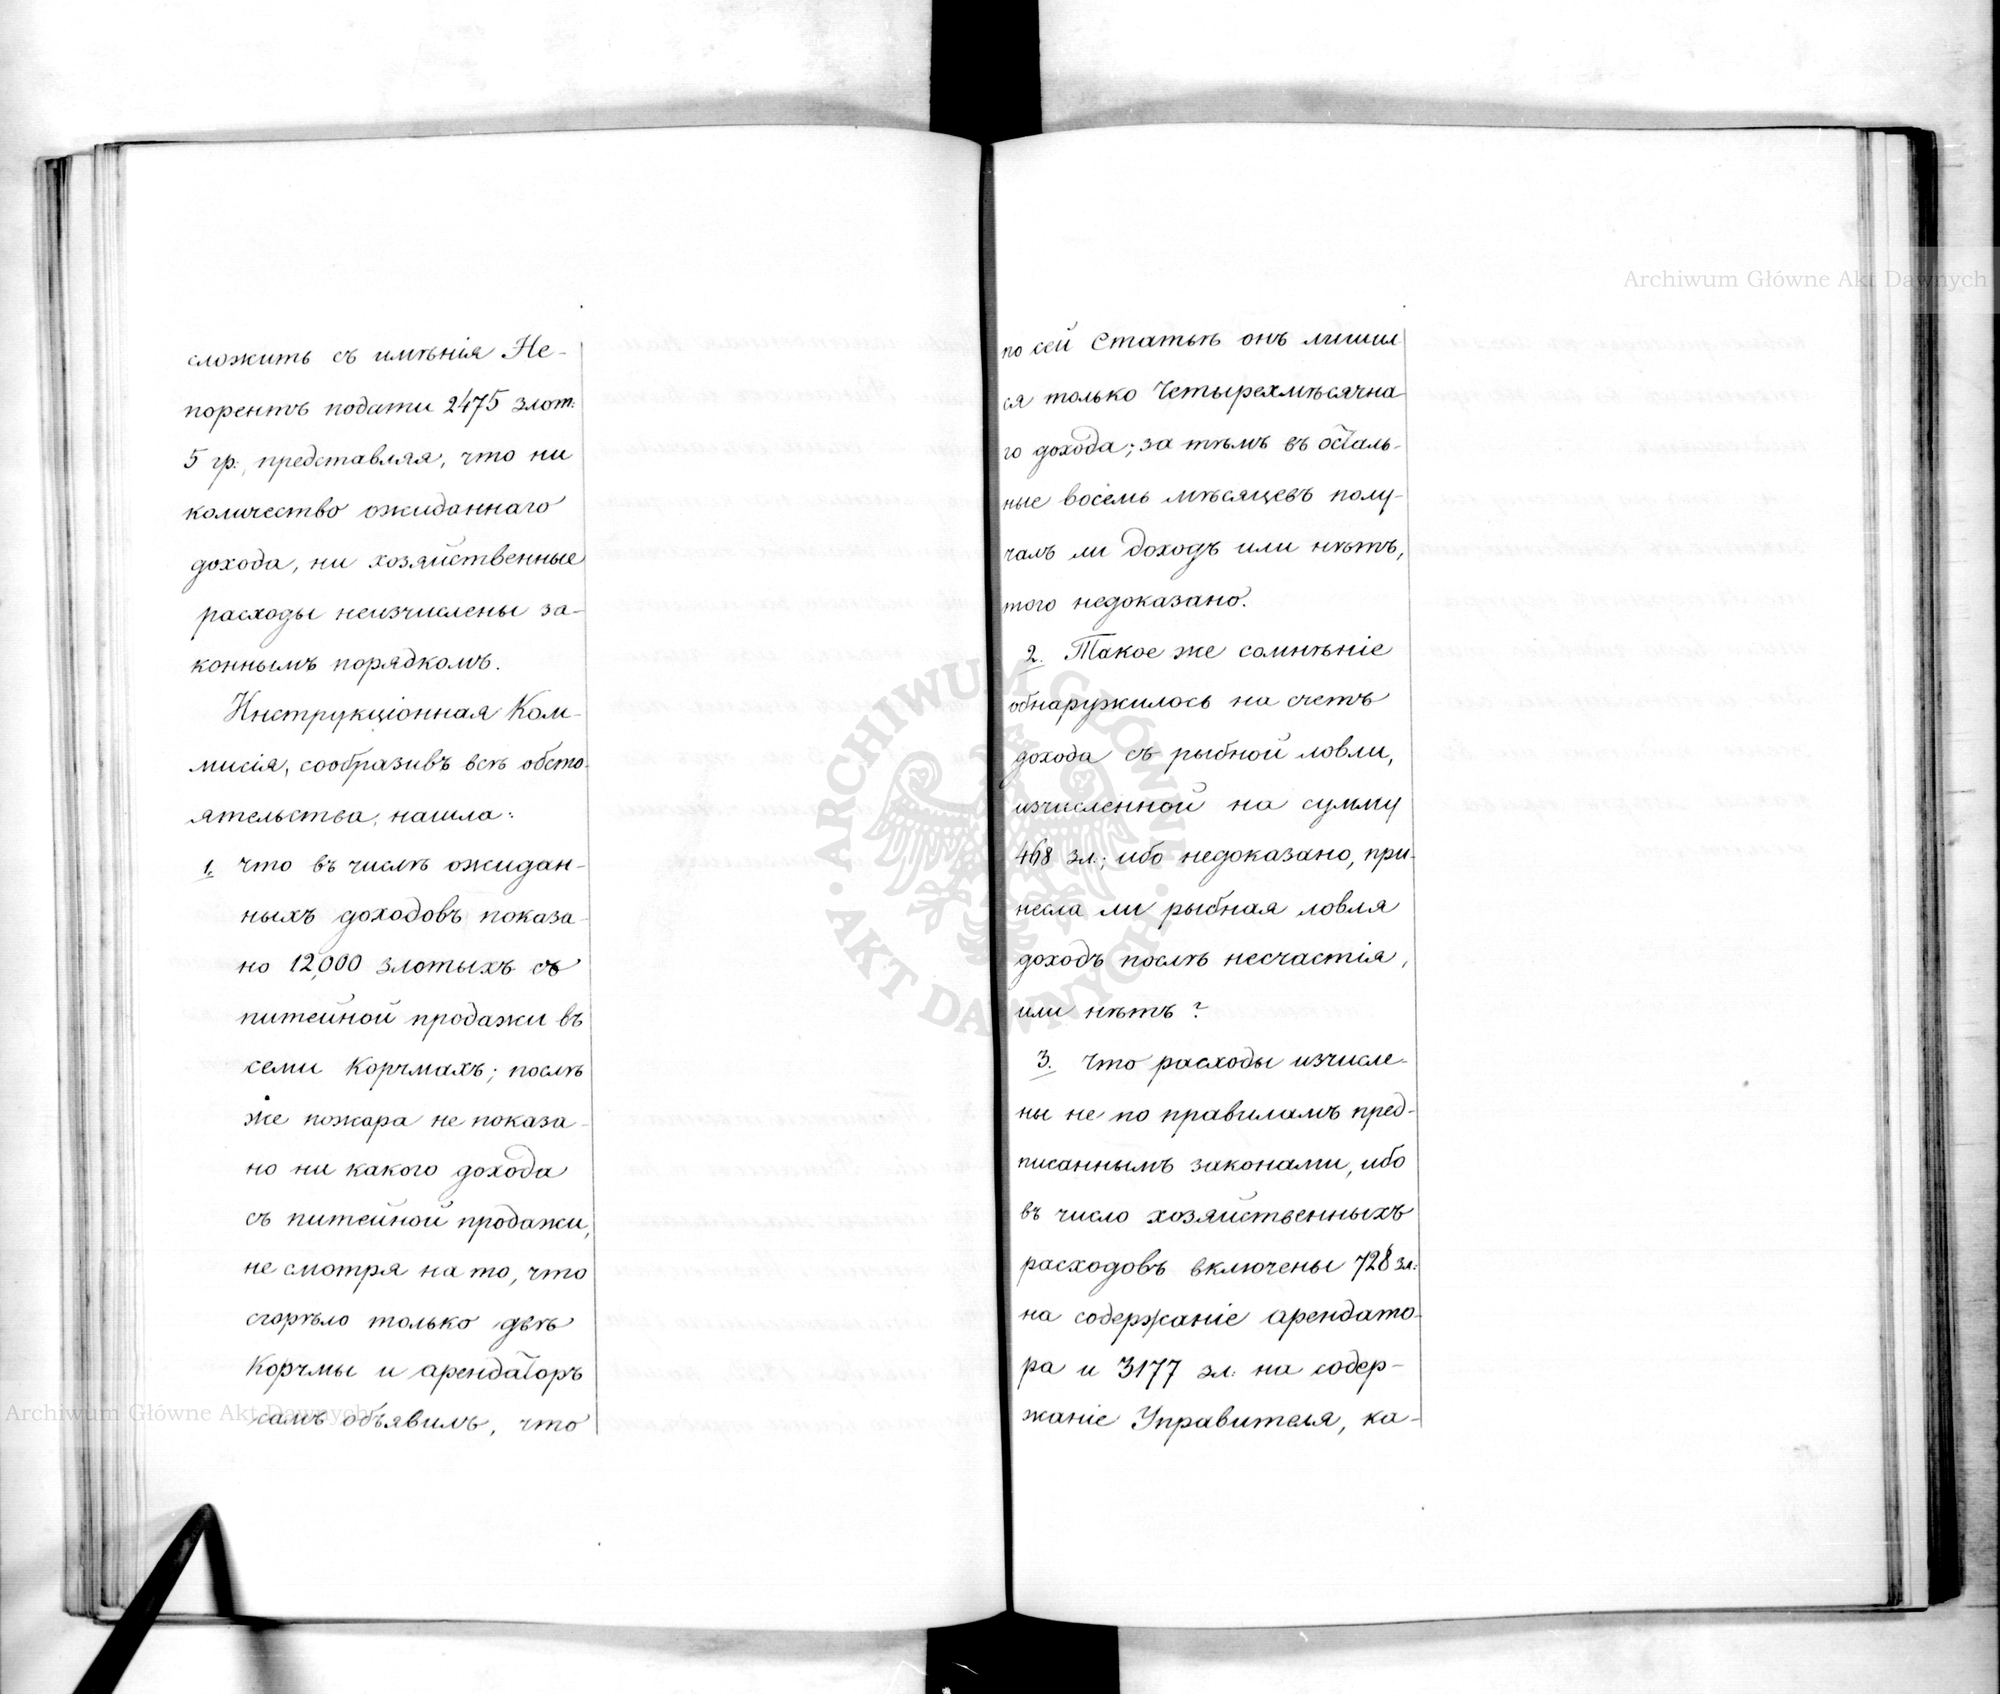 сложить съ имѣнія Не-
порентъ подати 2475 злот:
5 гр:, представляя, что ни
количество ожиданнаго
дохода, ни хозяйственные
расходы неизчислены за-
коннымъ порядкомъ.
Инструкціонная Ком-
мисія, сообразивъ всѣ обсто-
ятельства, нашла:
1. что въ числѣ ожидан-
ныхъ доходовъ показа-
но 12,000 злотыхъ съ
питейной продажи въ
семи Корчмахъ; послѣ
же пожара не показа-
но ни какого дохода
съ питейной продажи,
не смотря на то, что
сгорѣло только двѣ
Корчмы и арендаторъ
самъ объявилъ, что
по сей Статьѣ онъ лишил
ся только Четырехмѣсячна
го дохода; за тѣмъ въ осталь-
ные восемь мѣсяцевъ полу-
чалъ ли доходъ или нѣтъ,
того недоказано.
2. Такое же сомнѣніе
обнаружилось на счетъ
дохода съ рыбной ловли,
изчисленной на сумму
468 зл.; ибо недоказано, при-
несла ли рыбная ловля
доходъ послѣ несчастія,
или нѣтъ?
3. Что расходы изчисле-
ны не по правиламъ пред-
писаннымъ законами, ибо
въ число хозяйственныхъ
расходовъ включены 728 зл:
на содержаніе арендато-
ра и 3177 зл: на содер-
жаніе Управителя, ка-
Archiwum Główne Akt Dawnych
Archiwum Główne Akt Dawnych
ARCHIWUM GŁÓWNE
AKT DAWNYCH